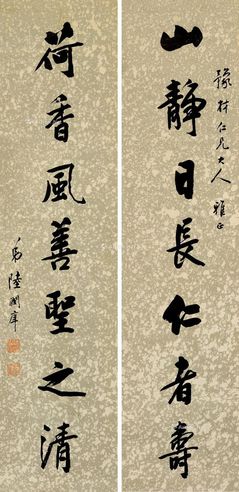 豫林仁兄大人雅正
山静日長仁者壽
荷香風善聖之清
弟陸潤庠